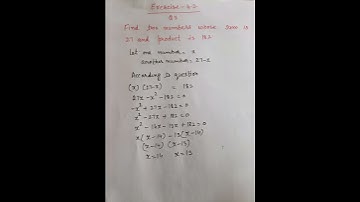 Exercise - 4.2
Q3
Find two numbers whose sum is
27 and product is 182
let one number = x
another number = 27-x
According to question
(x) (27-x) = 182
27x - x² - 182 = 0
-x² + 27x - 182 = 0
x² - 27x + 182 = 0
x² - 14x - 13x + 182 = 0
x (x-14) - 13 (x-14)
(x-14) (x-13)
x = 14 x = 13